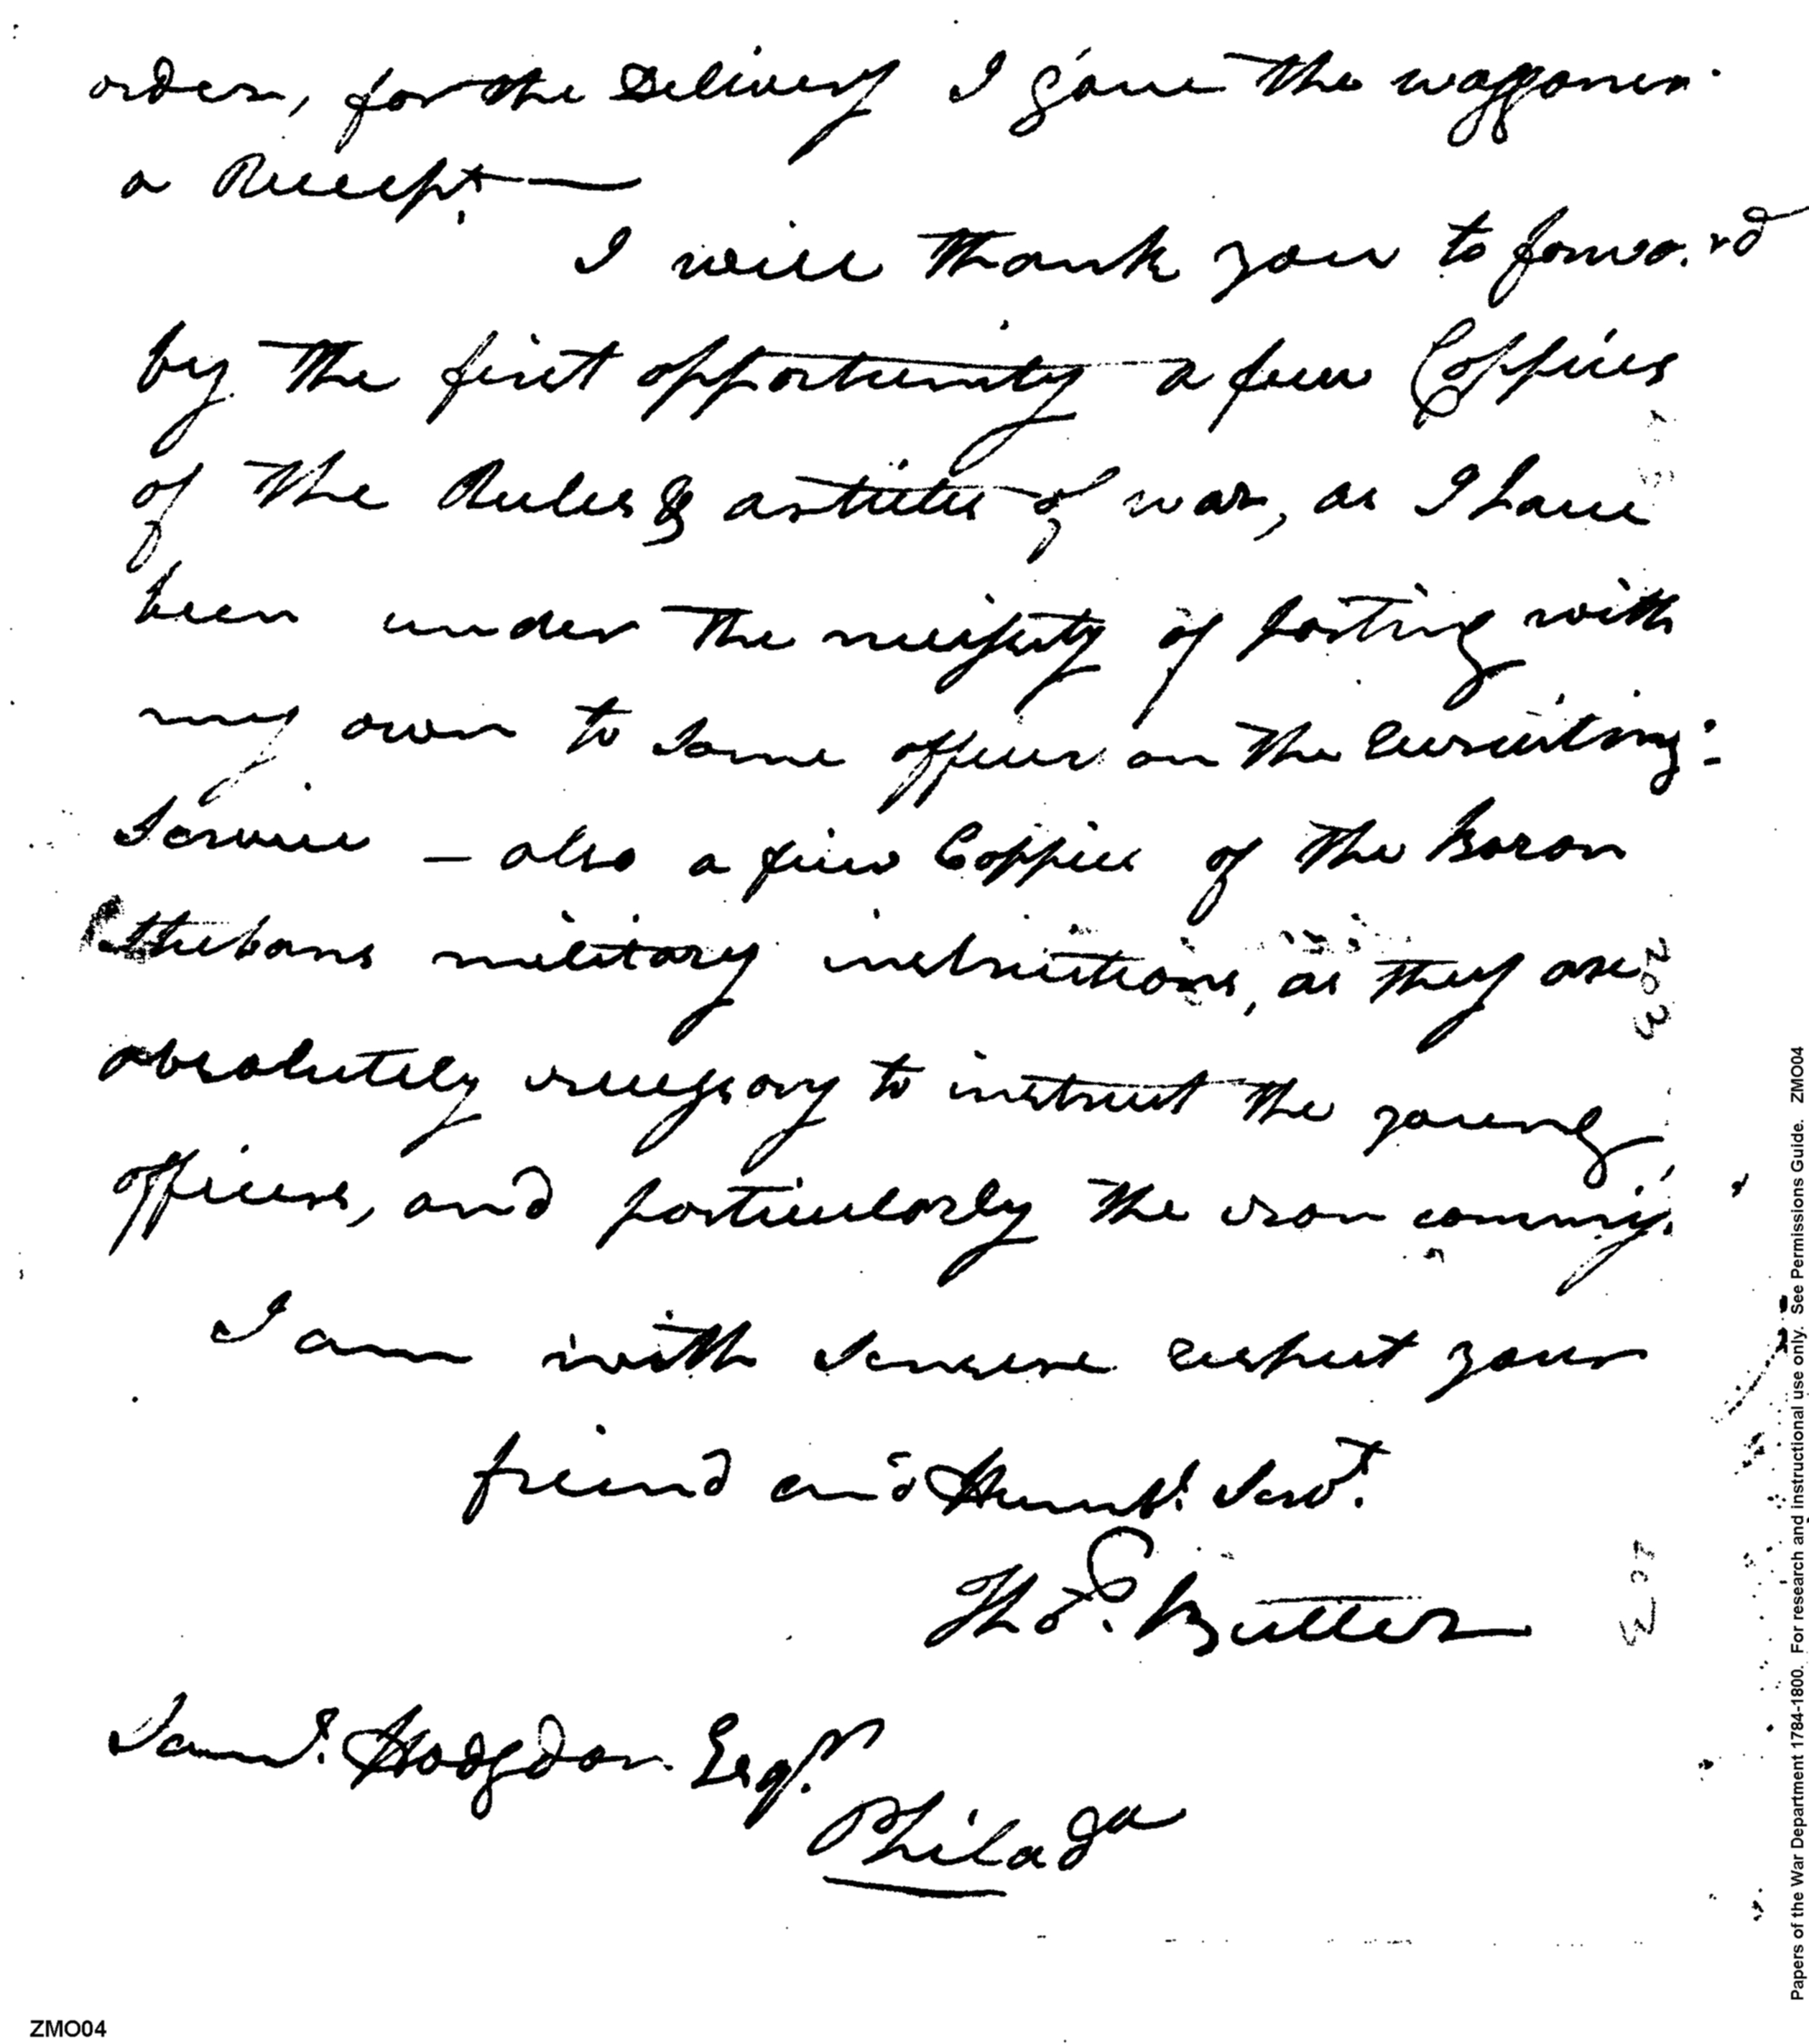 order, for the Delivery I gave the waggoner.
a Receipt. —
I will thank you to forwa.rd
by the first opportunity a few Coppies
of the Rules & articles of war, as I have
been under the necessity of parting with
my own to some officer on the recruiting =
Service — also a few Coppies of the Baron
Stubans military instructions, as they are
absolutely necessary to instruct the young
officers, and particularly the non commis.
I am with sincere respect your
friend and Humbl. Servt.
Thos. Butler
Saml. Hodgdon Esqr.
Philada
Papers of the War Department 1784-1800. For research and instructional use only. See Permissions Guide. ZMO04
ZMO04